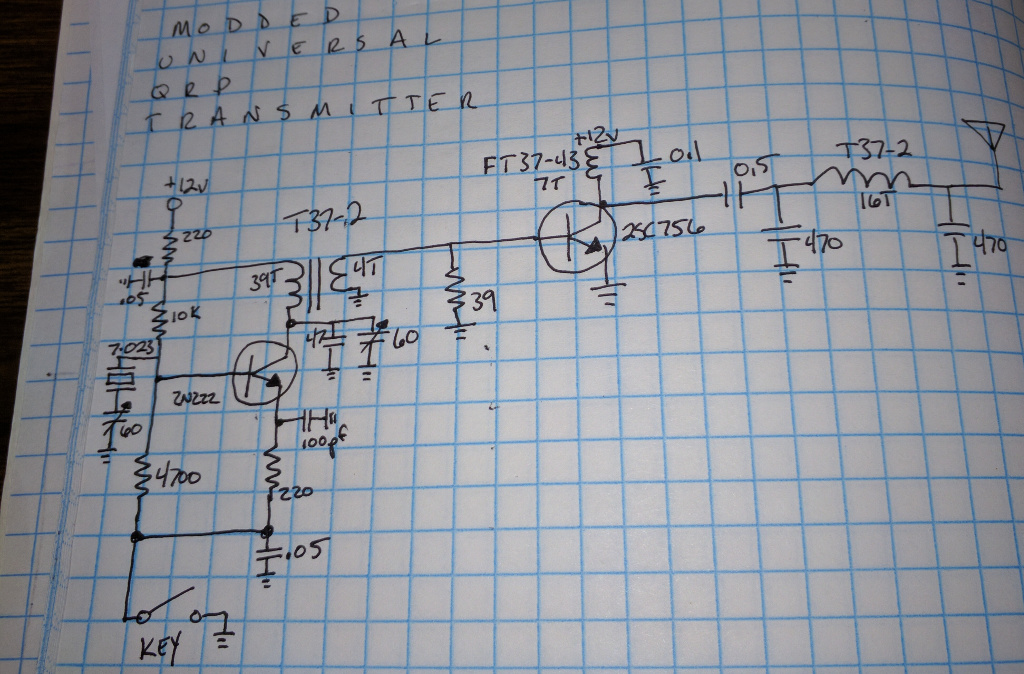 MODDED
UNIVERSAL
QRP
TRANSMITTER
+12V
220
.05
10K
7.023
60
4700
KEY
T37-2
39T
4T
47
60
2N222
100pf
220
.05
39
+12V
FT37-43
7T
0.1
2SC756
0.5
T37-2
16T
470
470